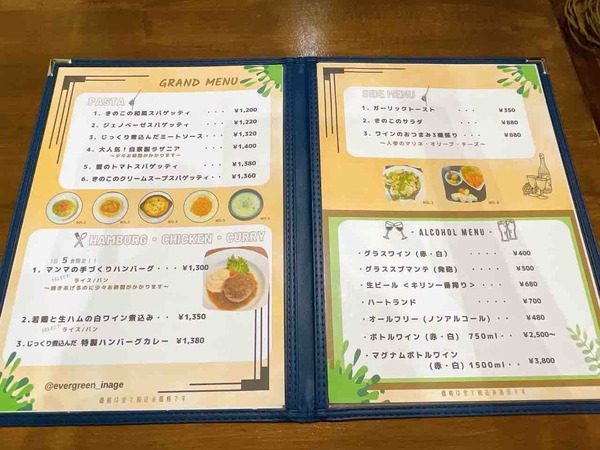 GRAND MENU
PASTA
1. きのこの和風スパゲッティ ・・・ ¥1,200
2. ジェノベーゼスパゲッティ ・・・ ¥1,220
3. じっくり煮込んだミートソース・・・ ¥1,320
4. 大人気！自家製ラザニア ・・・ ¥1,400
～少々お時間がかかります～
5. 蟹のトマトスパゲッティ ・・・ ¥1,380
6. きのこのクリームスープスパゲッティ・・ ¥1,360
NO.1 NO.2 NO.4 NO.5
HAMBURG・CHICKEN・CURRY
1日 5 食限定！！
1. マンマの手づくりハンバーグ・・・ ¥1,300
SELECT ライス/パン
～焼きあげるのに少々お時間がかかります～
2. 若鶏と生ハムの白ワイン煮込み・・ ¥1,350
SELECT ライス/パン
3. じっくり煮込んだ 特製ハンバーグカレー ¥1,380
@evergreen_inage
価格は全て税込み価格です
SIDE MENU
1. ガーリックトースト ¥350
2. きのこのサラダ ¥880
3. ワインのおつまみ3種盛り・・ ¥880
～人参のマリネ・オリーブ・チーズ～
・ALCOHOL MENU・
・グラスワイン (赤・白) ・・・・ ¥400
・グラススプマンテ (発泡) ・・・ ¥500
・生ビール <キリン一番搾り> ・・・ ¥680
・ハートランド ・・・・ ¥700
・オールフリー (ノンアルコール) ・・ ¥480
・ボトルワイン (赤・白) 750ml・・ ¥2,500～
・マグナムボトルワイン
(赤・白) 1500ml・・ ¥3,800
価格は全て税込み価格です